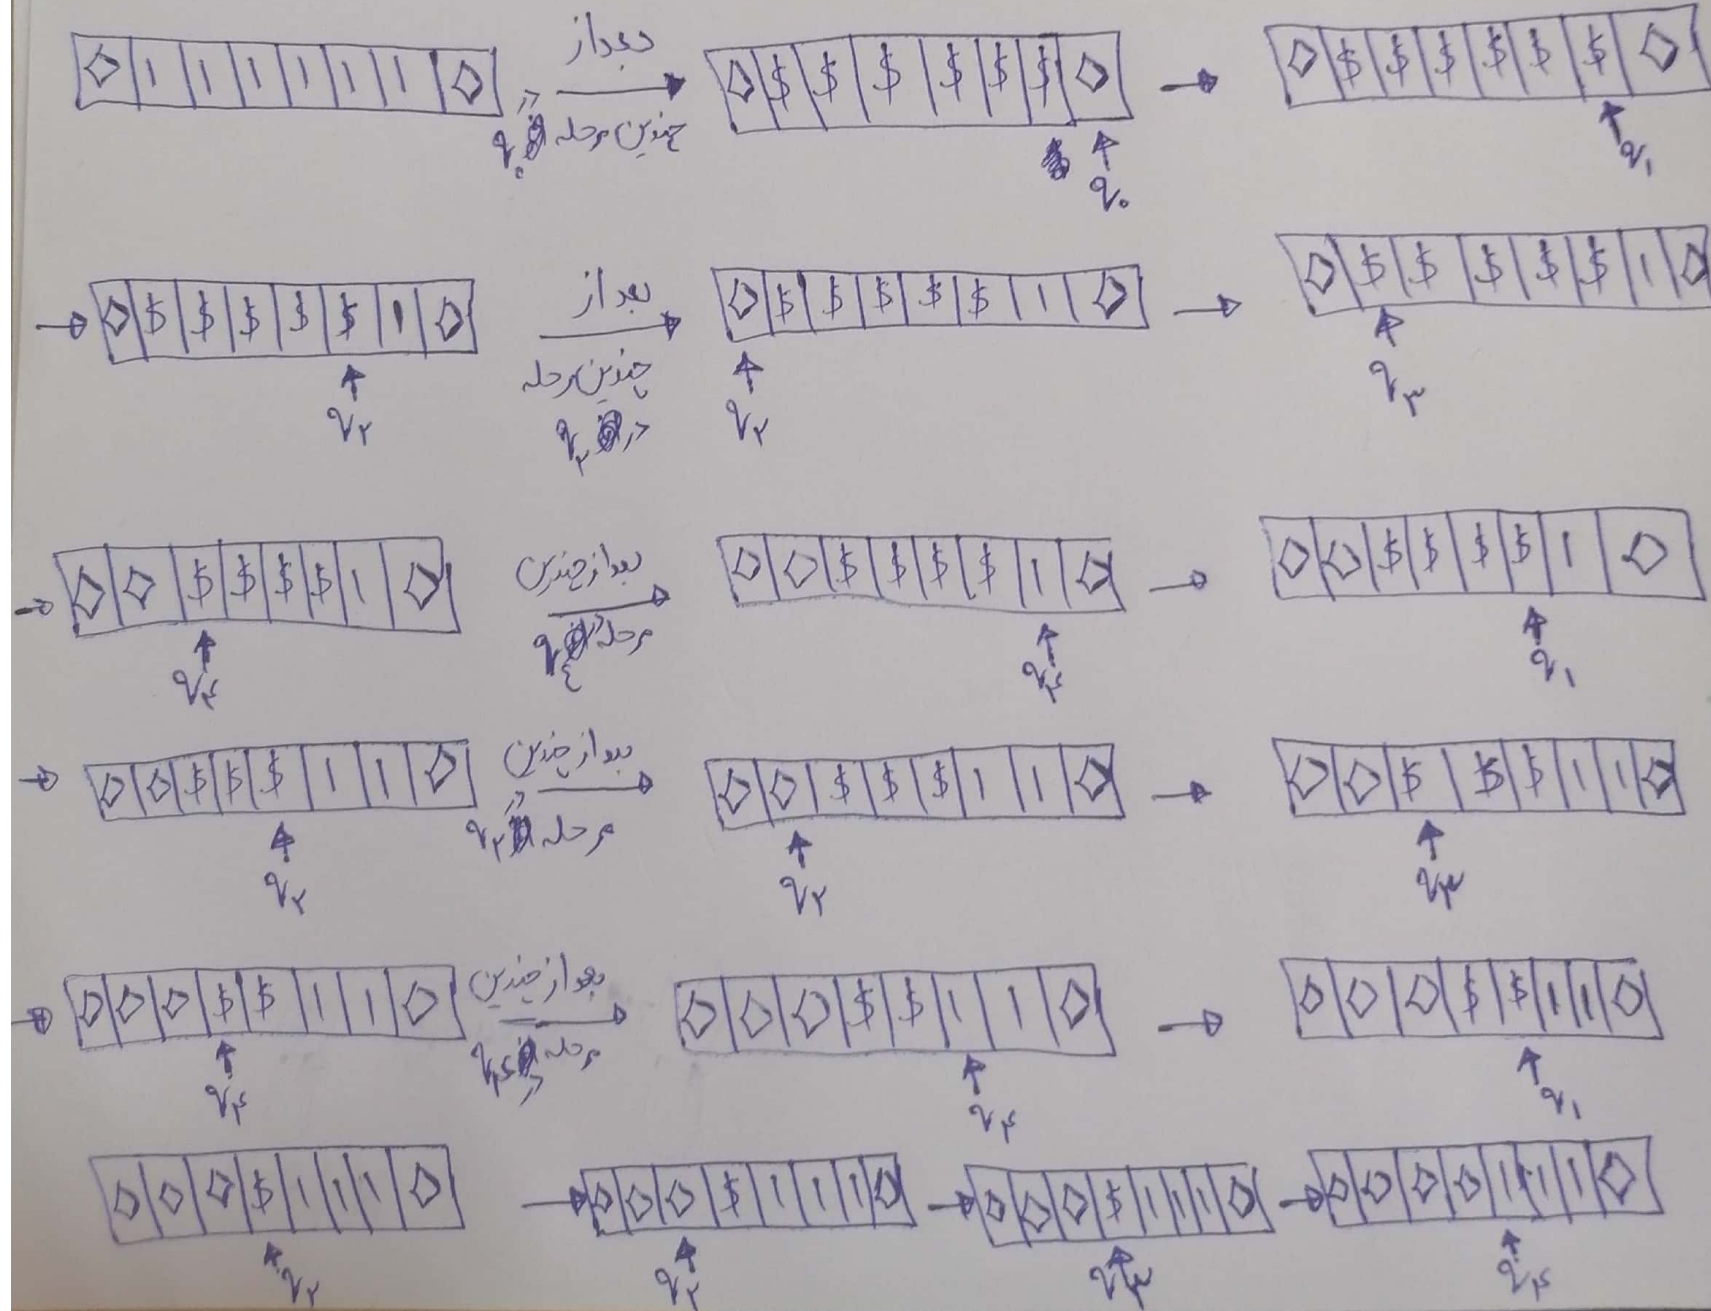 ◇ 1 1 1 1 1 1 ◇ بعد از چندین مرحله در q۰ → ◇ $ $ $ $ $ $ ◇ → ◇ $ $ $ $ $ $ ◇
q۰ q۱
→ ◇ $ $ $ $ $ 1 ◇ بعد از چندین مرحله در q۲ → ◇ $ $ $ $ $ 1 ◇ → ◇ $ $ $ $ $ 1 ◇
q۲ q۲ q۳
→ ◇ ◇ $ $ $ $ 1 ◇ بعد از چندین مرحله در q۴ → ◇ ◇ $ $ $ $ 1 ◇ → ◇ ◇ $ $ $ $ 1 ◇
q۴ q۴ q۱
→ ◇ ◇ $ $ $ 1 1 ◇ بعد از چندین مرحله در q۲ → ◇ ◇ $ $ $ 1 1 ◇ → ◇ ◇ $ $ $ 1 1 ◇
q۲ q۲ q۳
→ ◇ ◇ ◇ $ $ 1 1 ◇ بعد از چندین مرحله در q۴ → ◇ ◇ ◇ $ $ 1 1 ◇ → ◇ ◇ ◇ $ $ 1 1 ◇
q۴ q۴ q۱
◇ ◇ ◇ $ 1 1 1 ◇ → ◇ ◇ ◇ $ 1 1 1 ◇ → ◇ ◇ ◇ $ 1 1 1 ◇ → ◇ ◇ ◇ ◇ 1 1 1 ◇
q۲ q۲ q۳ q۴